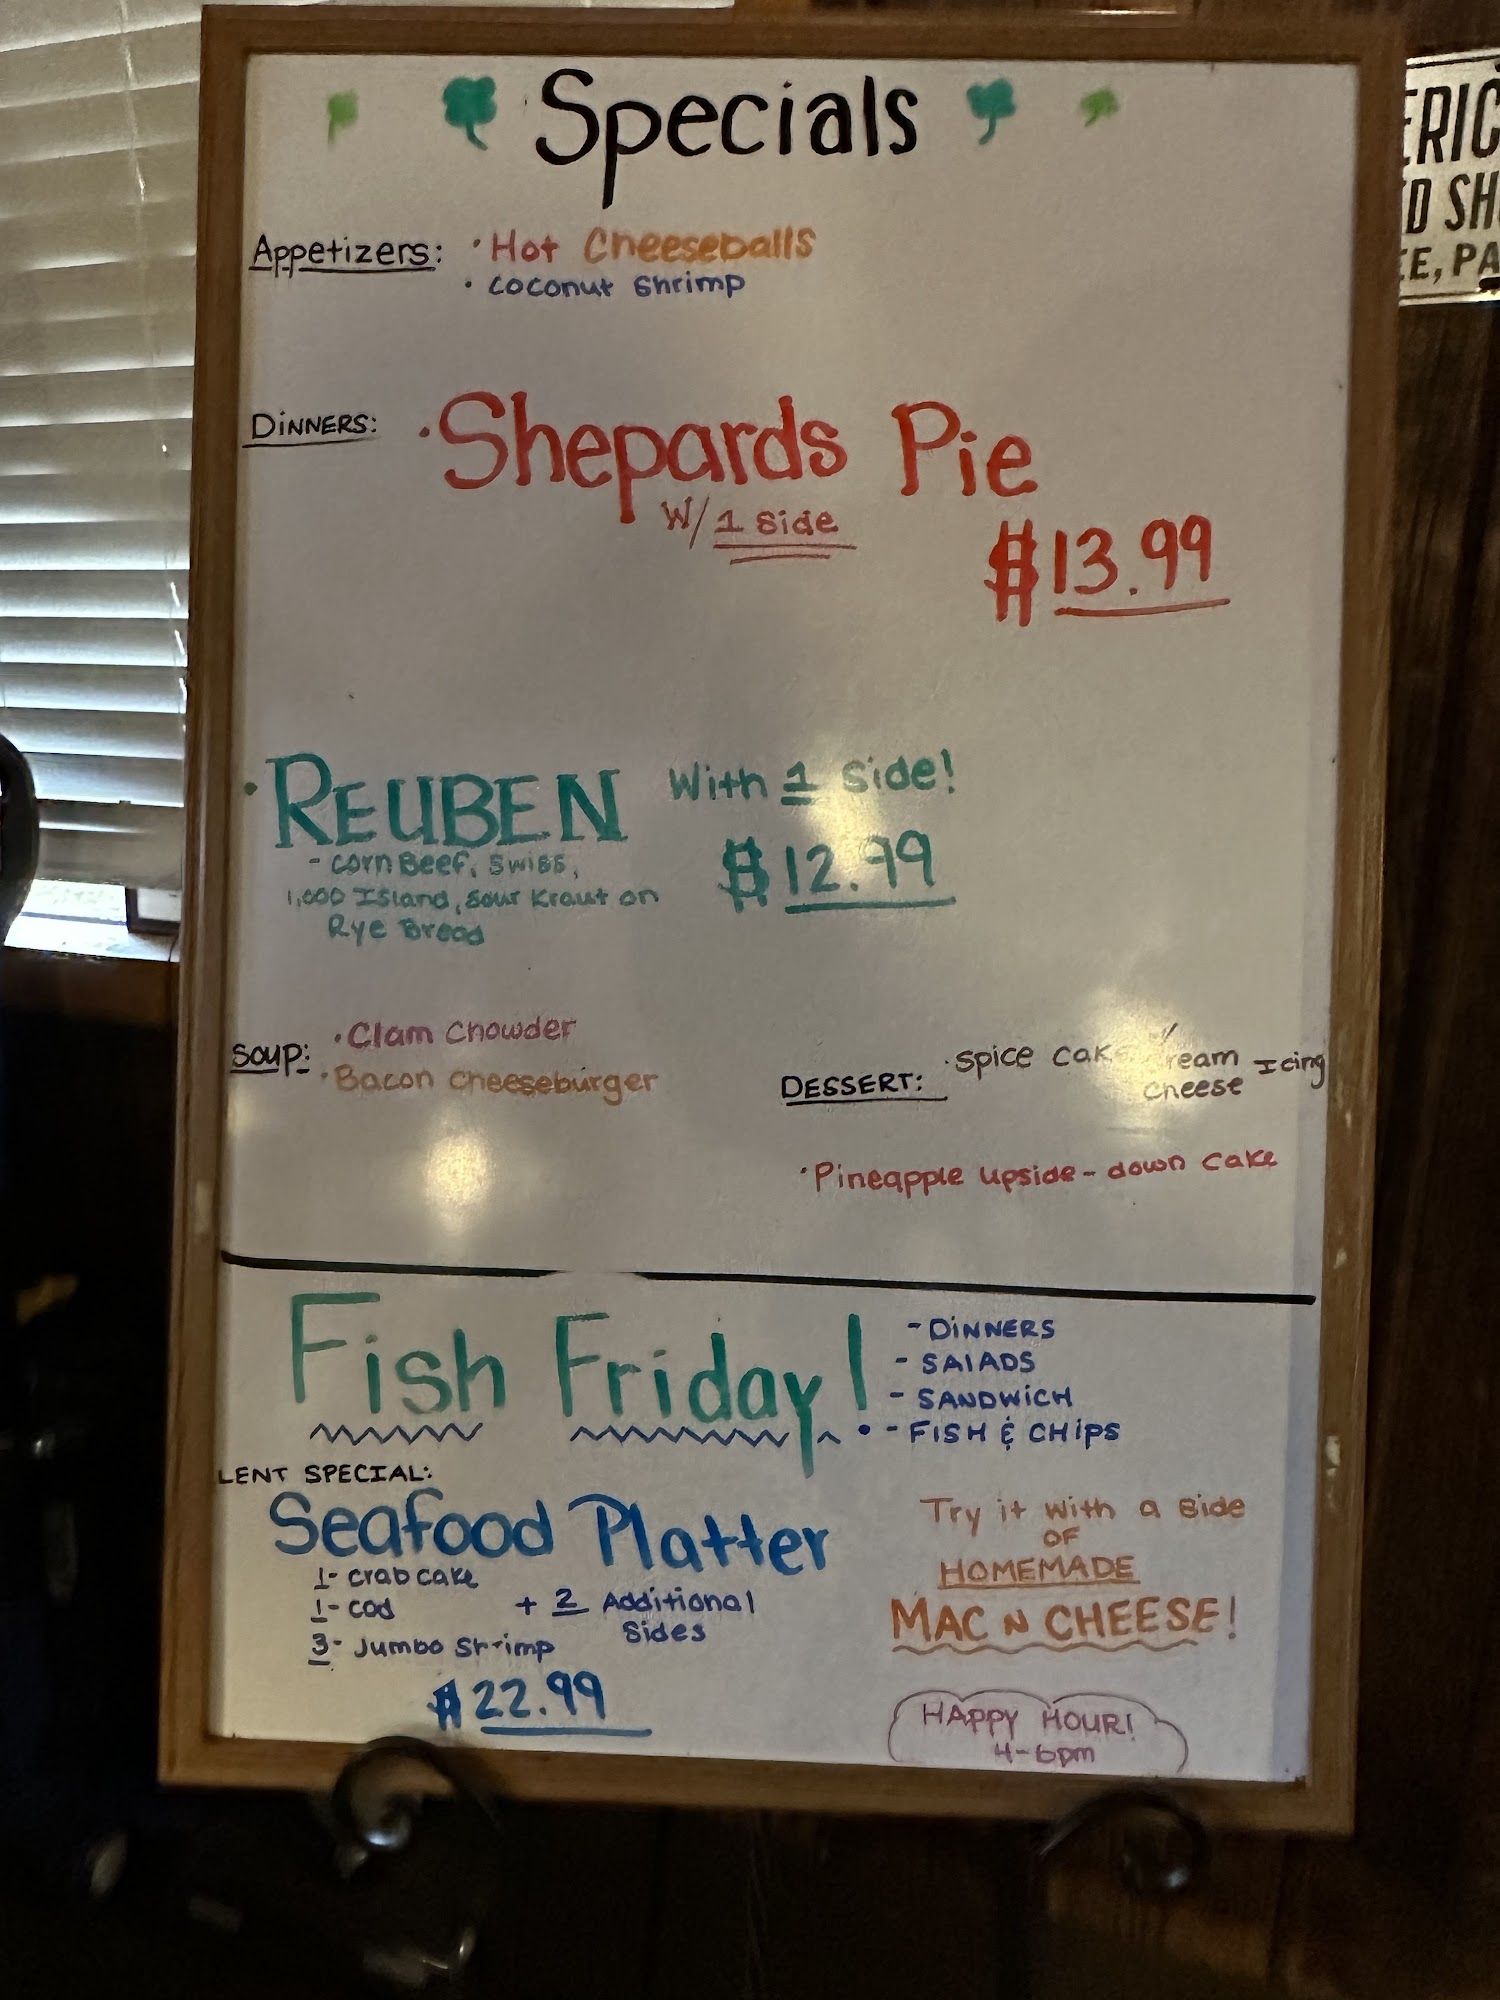 Specials
Appetizers: • Hot Cheeseballs
• Coconut Shrimp
DINNERS: • Shepards Pie
W/ 1 Side
$13.99
• REUBEN With 1 Side!
- Corn Beef, Swiss,
$12.99
1,000 Island, Sour Kraut on
Rye Bread
Soup: • Clam Chowder
• Bacon Cheeseburger
DESSERT: • Spice Cake w/ Cream Icing
Cheese
• Pineapple upside-down Cake
Fish Friday!
- DINNERS
- SALADS
- SANDWICH
- FISH & CHIPS
LENT SPECIAL:
Seafood Platter
1- Crab cake
1- Cod
3- Jumbo Shrimp
+ 2 Additional
Sides
$22.99
Try it with a Side
OF
HOMEMADE
MAC N CHEESE!
HAPPY HOUR!
4-6pm
ERIC
D SH
E, PA